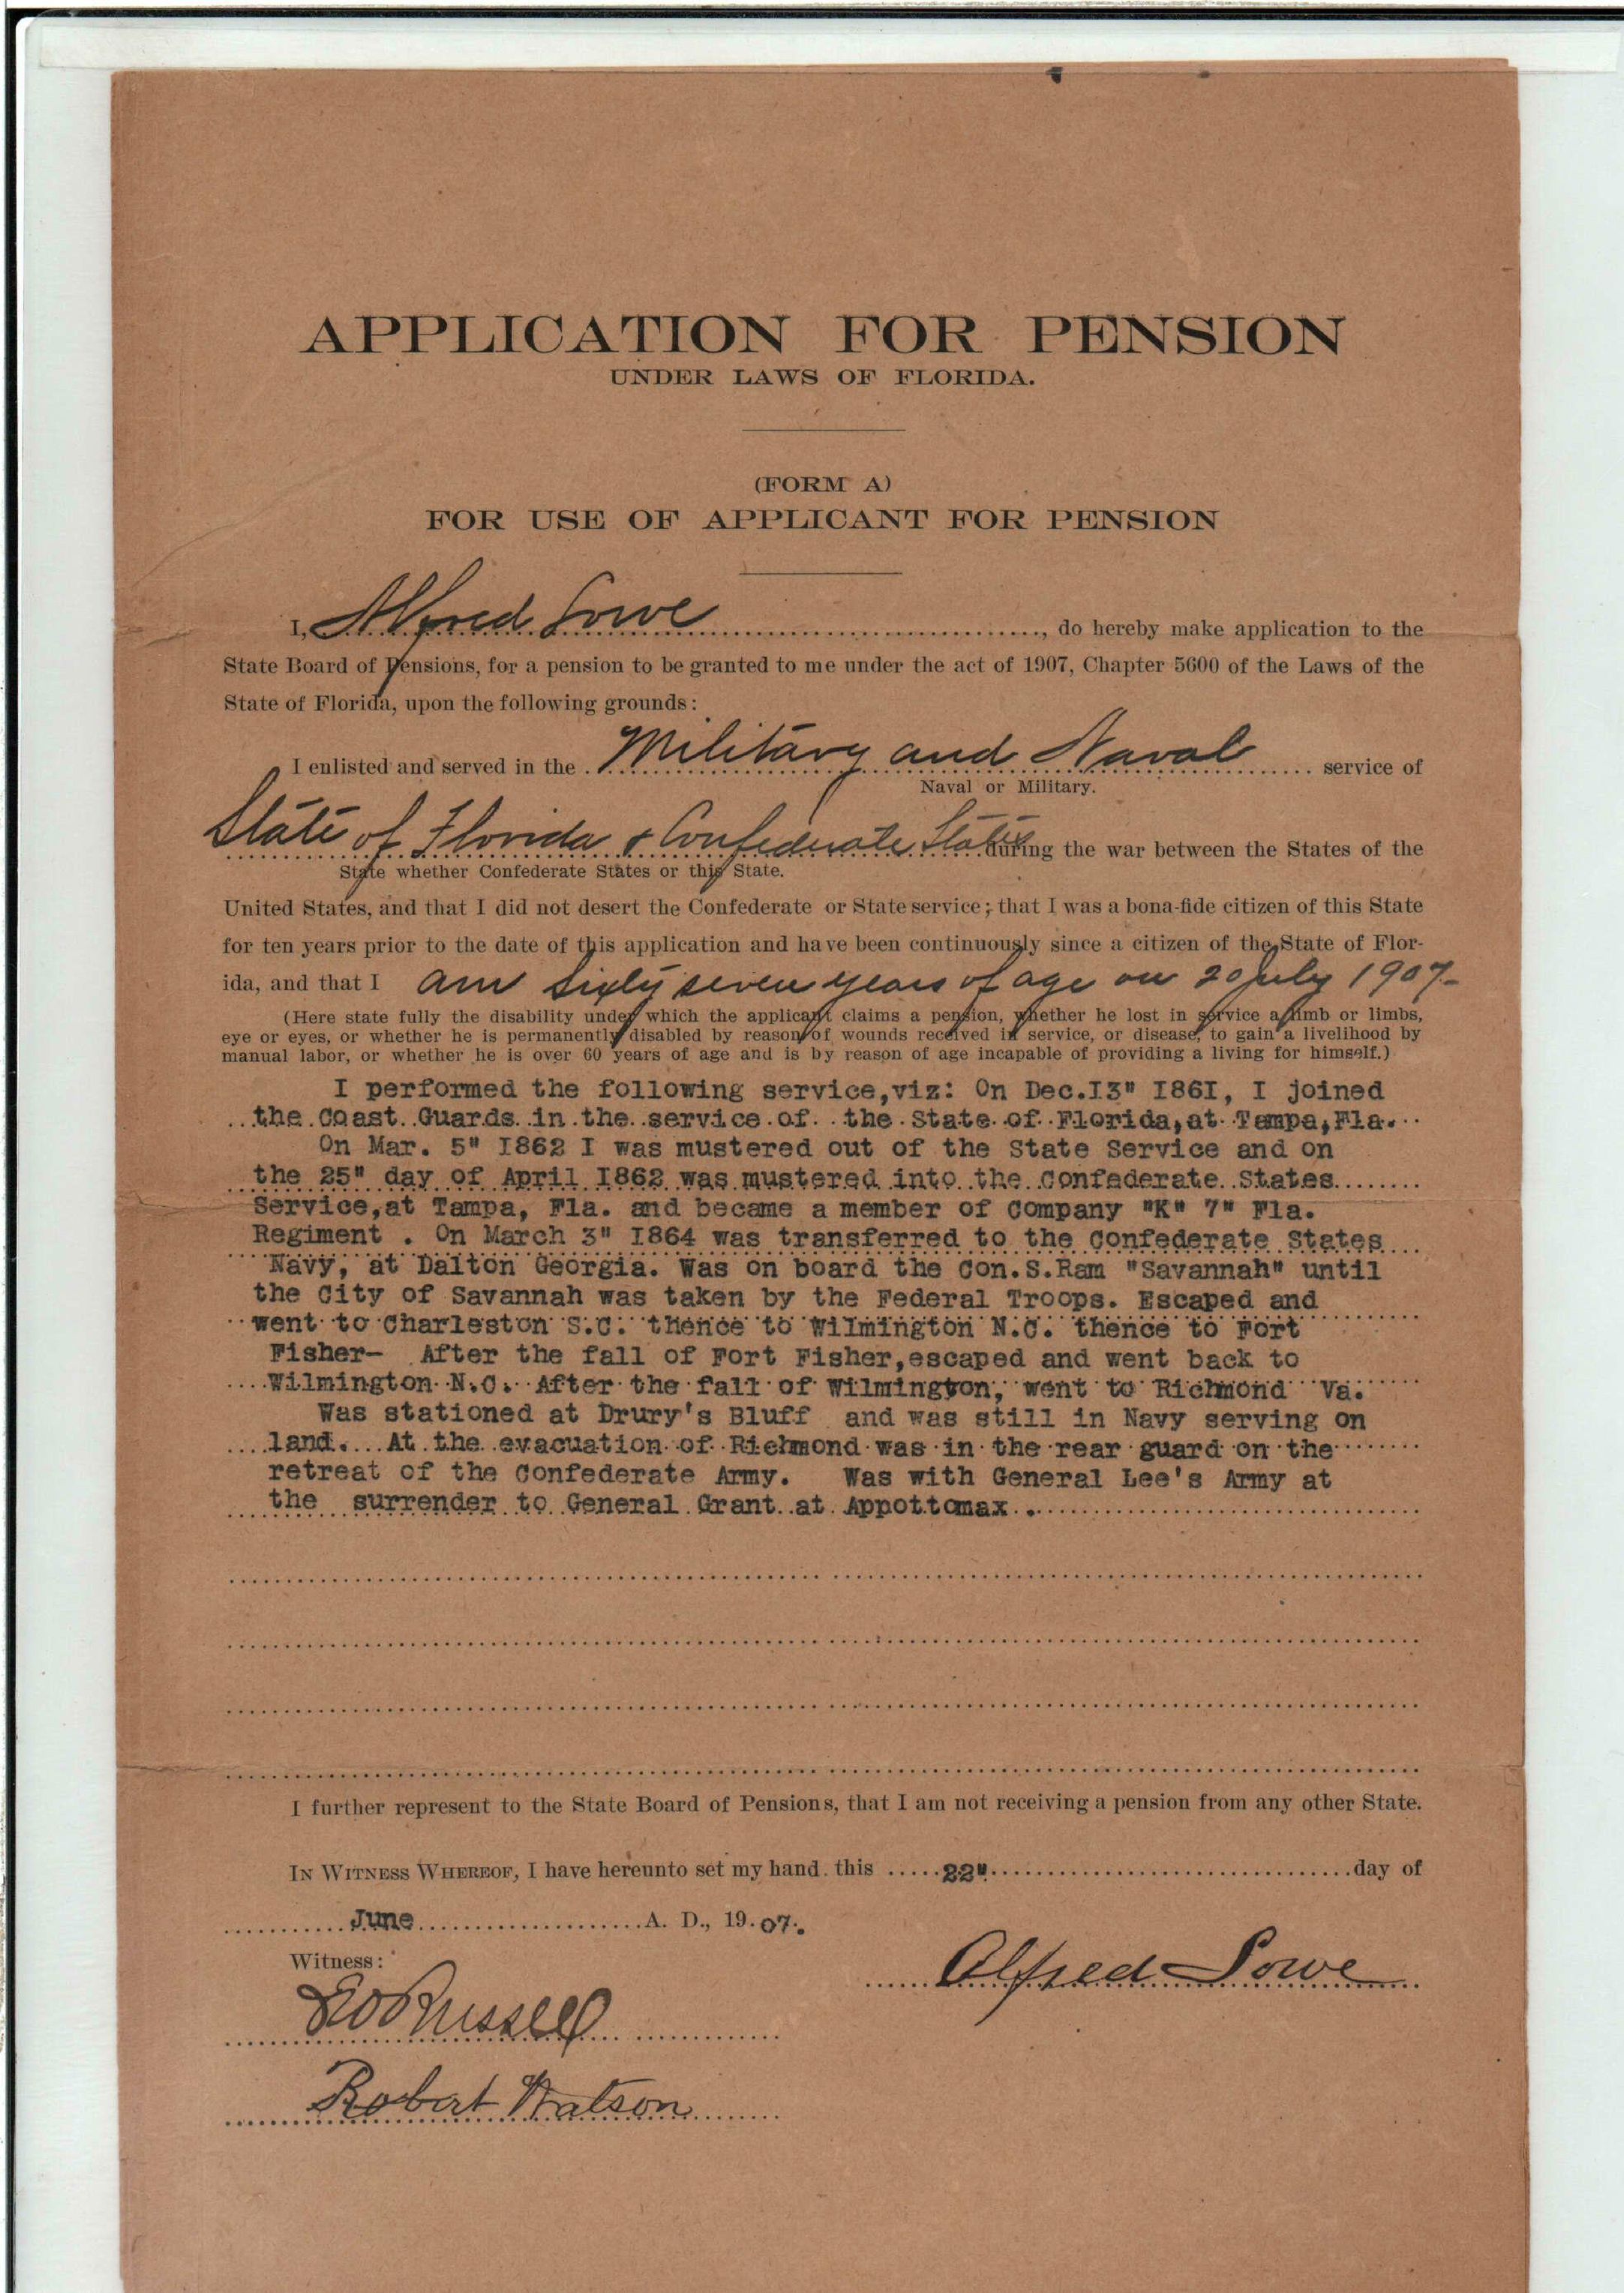 APPLICATION FOR PENSION
UNDER LAWS OF FLORIDA.
(FORM A)
FOR USE OF APPLICANT FOR PENSION
I, Alfred Lowe, do hereby make application to the
State Board of Pensions, for a pension to be granted to me under the act of 1907, Chapter 5600 of the Laws of the
State of Florida, upon the following grounds:
I enlisted and served in the Military and Naval service of
Naval or Military.
State of Florida & Confederate States during the war between the States of the
State whether Confederate States or this State.
United States, and that I did not desert the Confederate or State service; that I was a bona-fide citizen of this State
for ten years prior to the date of this application and have been continuously since a citizen of the State of Flor-
ida, and that I am sixty seven years of age on 20 July 1907-
(Here state fully the disability under which the applicant claims a pension, whether he lost in service a limb or limbs,
eye or eyes, or whether he is permanently disabled by reason of wounds received in service, or disease, to gain a livelihood by
manual labor, or whether he is over 60 years of age and is by reason of age incapable of providing a living for himself.)
I performed the following service,viz: On Dec.I3" I86I, I joined
the Coast Guards in the service of the State of Florida,at Tampa,Fla.
On Mar. 5" I862 I was mustered out of the State Service and on
the 25" day of April I862 was mustered into the Confederate States
Service,at Tampa, Fla. and became a member of Company "K" 7" Fla.
Regiment . On March 3" I864 was transferred to the Confederate States
Navy, at Dalton Georgia. Was on board the Con.S.Ram "Savannah" until
the City of Savannah was taken by the Federal Troops. Escaped and
went to Charleston S.C. thence to Wilmington N.C. thence to Fort
Fisher- After the fall of Fort Fisher,escaped and went back to
Wilmington N.C. After the fall of Wilmington, went to Richmond Va.
Was stationed at Drury's Bluff and was still in Navy serving on
land. At the evacuation of Richmond was in the rear guard on the
retreat of the Confederate Army. Was with General Lee's Army at
the surrender to General Grant at Appottomax .
I further represent to the State Board of Pensions, that I am not receiving a pension from any other State.
IN WITNESS WHEREOF, I have hereunto set my hand this 22" day of
June A. D., 1907.
Witness:
Alfred Lowe
Russell
Robert Watson